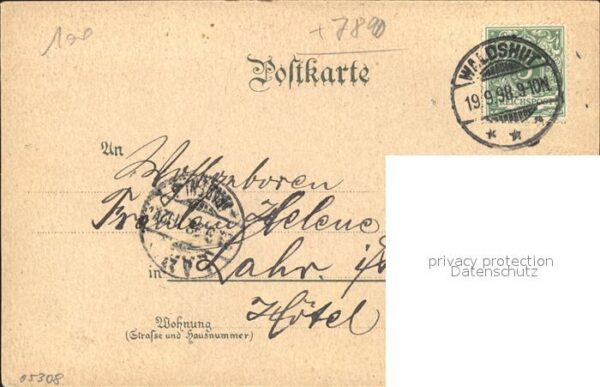 100
+7890
Postkarte
WALDSHUT
19.9.98.9-10N.
REICHSPOST
An
Wohlgeboren
Fräulein Helene
in Lahr i/
Hôtel
Wohnung
(Straße und Hausnummer)
privacy protection
Datenschutz
05308